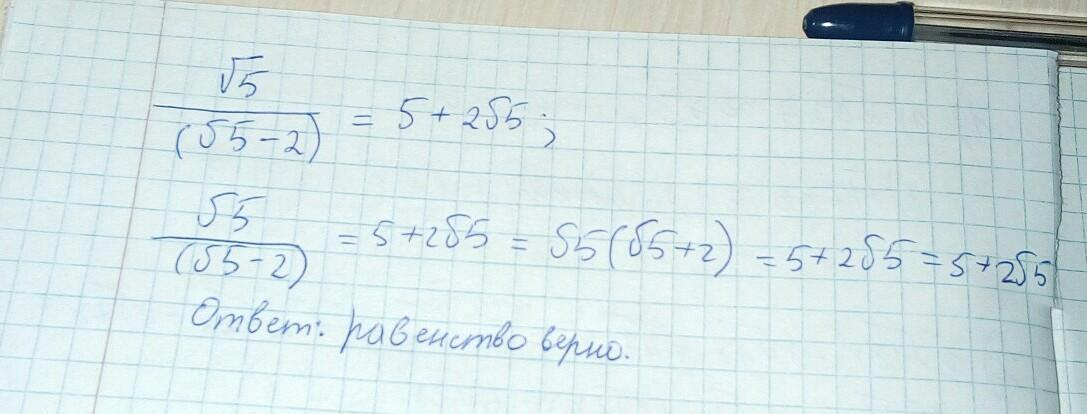 √5/(√5-2) = 5+2√5;
√5/(√5-2) = 5+2√5 = √5(√5+2) = 5+2√5 = 5+2√5
Ответ: равенство верно.